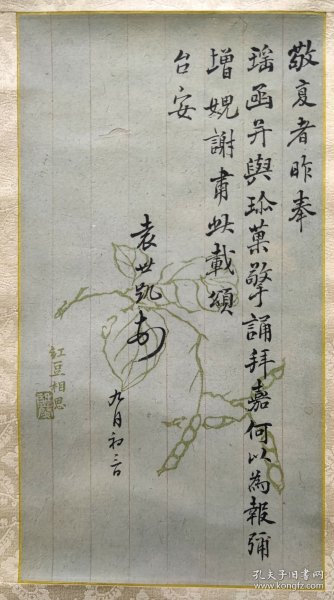 敬复者昨奉
瑶函并與珍菓擎誦拜嘉何以為報彌
增媿謝肅此載頌
台安
袁世凯
九月初三日
紅豆相思
孔夫子旧书网